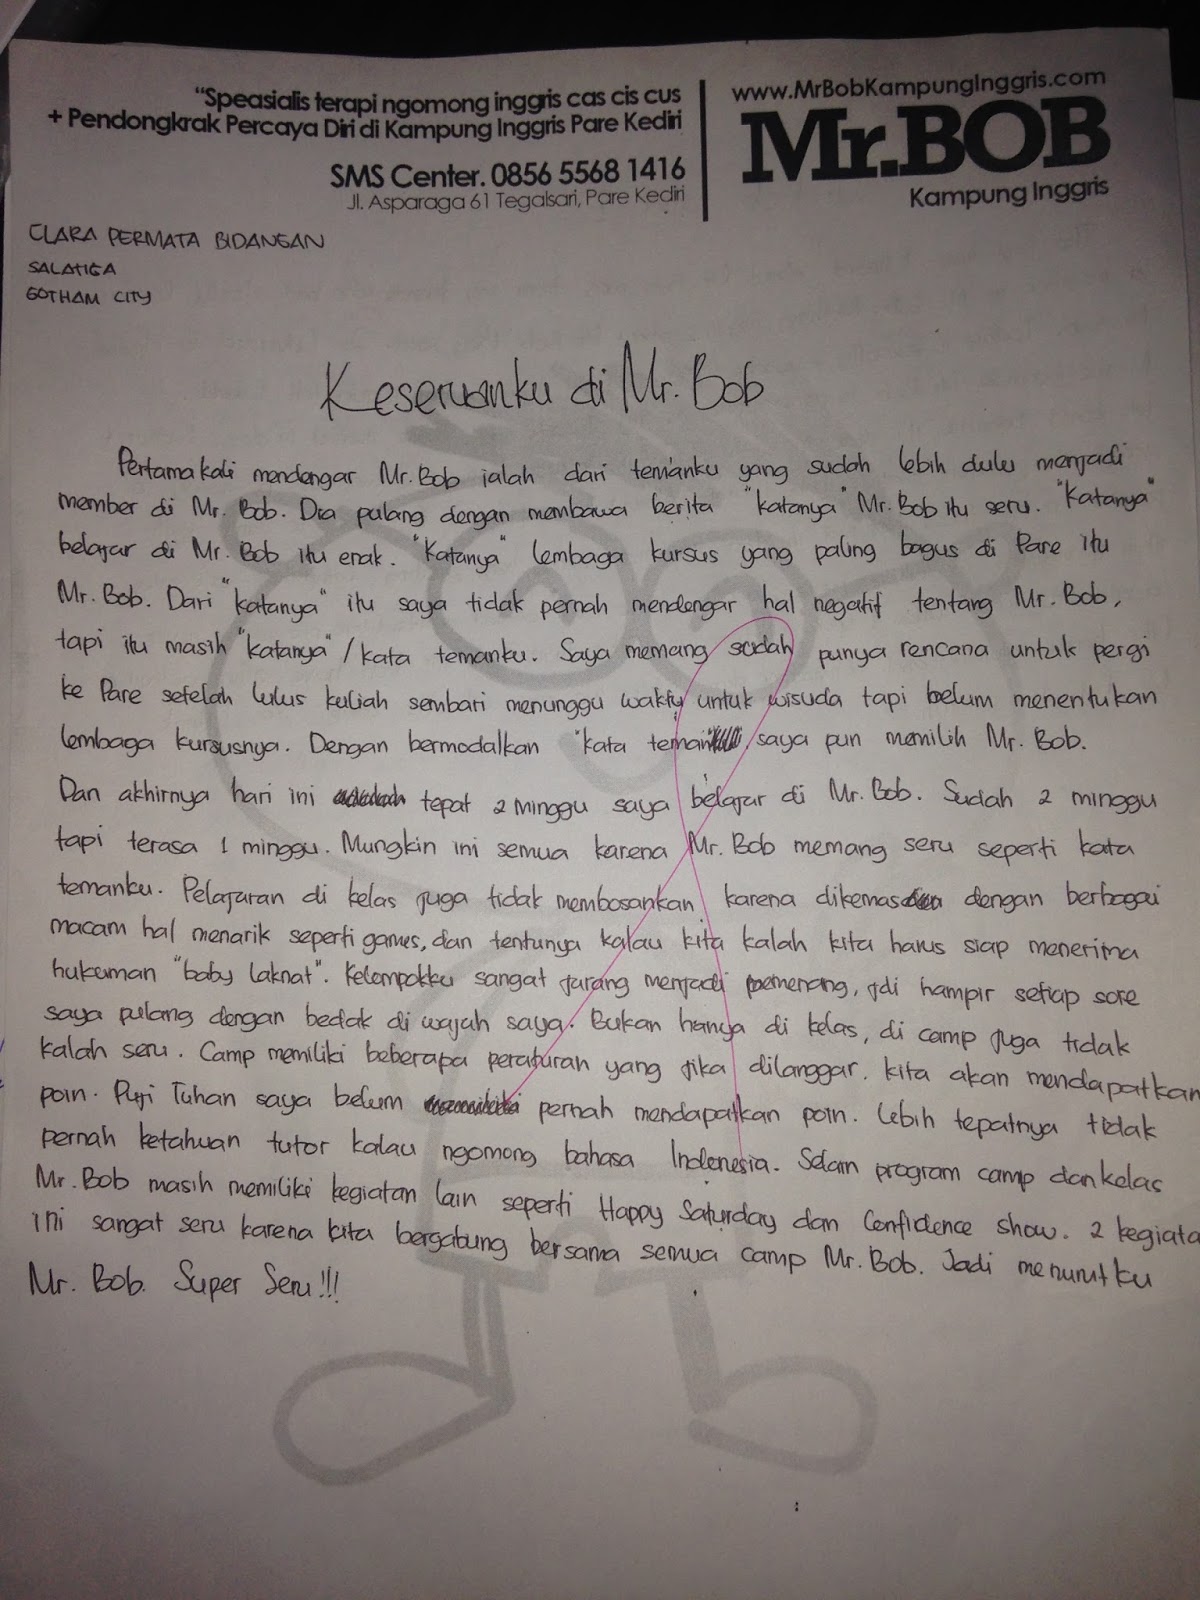 "Speasialis terapi ngomong inggris cas cis cus
+ Pendongkrak Percaya Diri di Kampung Inggris Pare Kediri
SMS Center. 0856 5568 1416
Jl. Asparaga 61 Tegalsari, Pare Kediri
www.MrBobKampungInggris.com
Mr.BOB
Kampung Inggris
CLARA PERMATA BIDANGAN
SALATIGA
GOTHAM CITY
Keseruanku di Mr. Bob
Pertama kali mendengar Mr. Bob ialah dari temanku yang sudah lebih dulu menjadi
member di Mr. Bob. Dia pulang dengan membawa berita "katanya" Mr. Bob itu seru. "Katanya"
belajar di Mr. Bob itu enak. "Katanya" lembaga kursus yang paling bagus di Pare itu
Mr. Bob. Dari "katanya" itu saya tidak pernah mendengar hal negatif tentang Mr. Bob,
tapi itu masih "katanya" / kata temanku. Saya memang sudah punya rencana untuk pergi
ke Pare setelah lulus kuliah sembari menunggu waktu untuk wisuda tapi belum menentukan
lembaga kursusnya. Dengan bermodalkan "kata teman saya pun memilih Mr. Bob.
Dan akhirnya hari ini tepat 2 minggu saya belajar di Mr. Bob. Sudah 2 minggu
tapi terasa 1 minggu. Mungkin ini semua karena Mr. Bob memang seru seperti kata
temanku. Pelajaran di kelas juga tidak membosankan karena dikemas dengan berbagai
macam hal menarik seperti games, dan tentunya kalau kita kalah kita harus siap menerima
hukuman "baby laknat". Kelompokku sangat jarang menjadi pemenang, jdi hampir setiap sore
saya pulang dengan bedak di wajah saya. Bukan hanya di kelas, di camp juga tidak
kalah seru. Camp memiliki beberapa peraturan yang jika dilanggar, kita akan mendapatkan
poin. Puji Tuhan saya belum pernah mendapatkan poin. Lebih tepatnya tidak
pernah ketahuan tutor kalau ngomong bahasa Indonesia. Selain program camp dan kelas
Mr. Bob masih memiliki kegiatan lain seperti Happy Saturday dan Confidence show. 2 kegiata
ini sangat seru karena kita bergabung bersama semua camp Mr. Bob. Jadi menurutku
Mr. Bob. Super Seru!!!